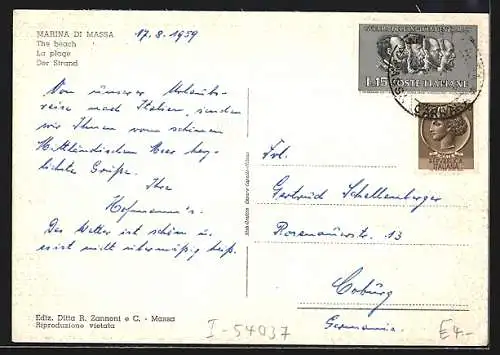 MARINA DI MASSA
The beach
La plage
Der Strand
17.8.1959
L.15 POSTE ITALIANE
Von unserer Urlaubs-
reise nach Italien senden
wir Ihnen vom schönen
Mittländischen Meer herz-
lichste Grüße.
Ihre
Hofmann's.
Das Wetter ist schön u.
es ist nicht übermäßig heiß.
Frl.
Gertrud Schellenberger
Rosenauerstr. 13
Coburg
Germania.
Ediz. Ditta R. Zannoni e C. - Massa
Riproduzione vietata
I-54037
E4.-